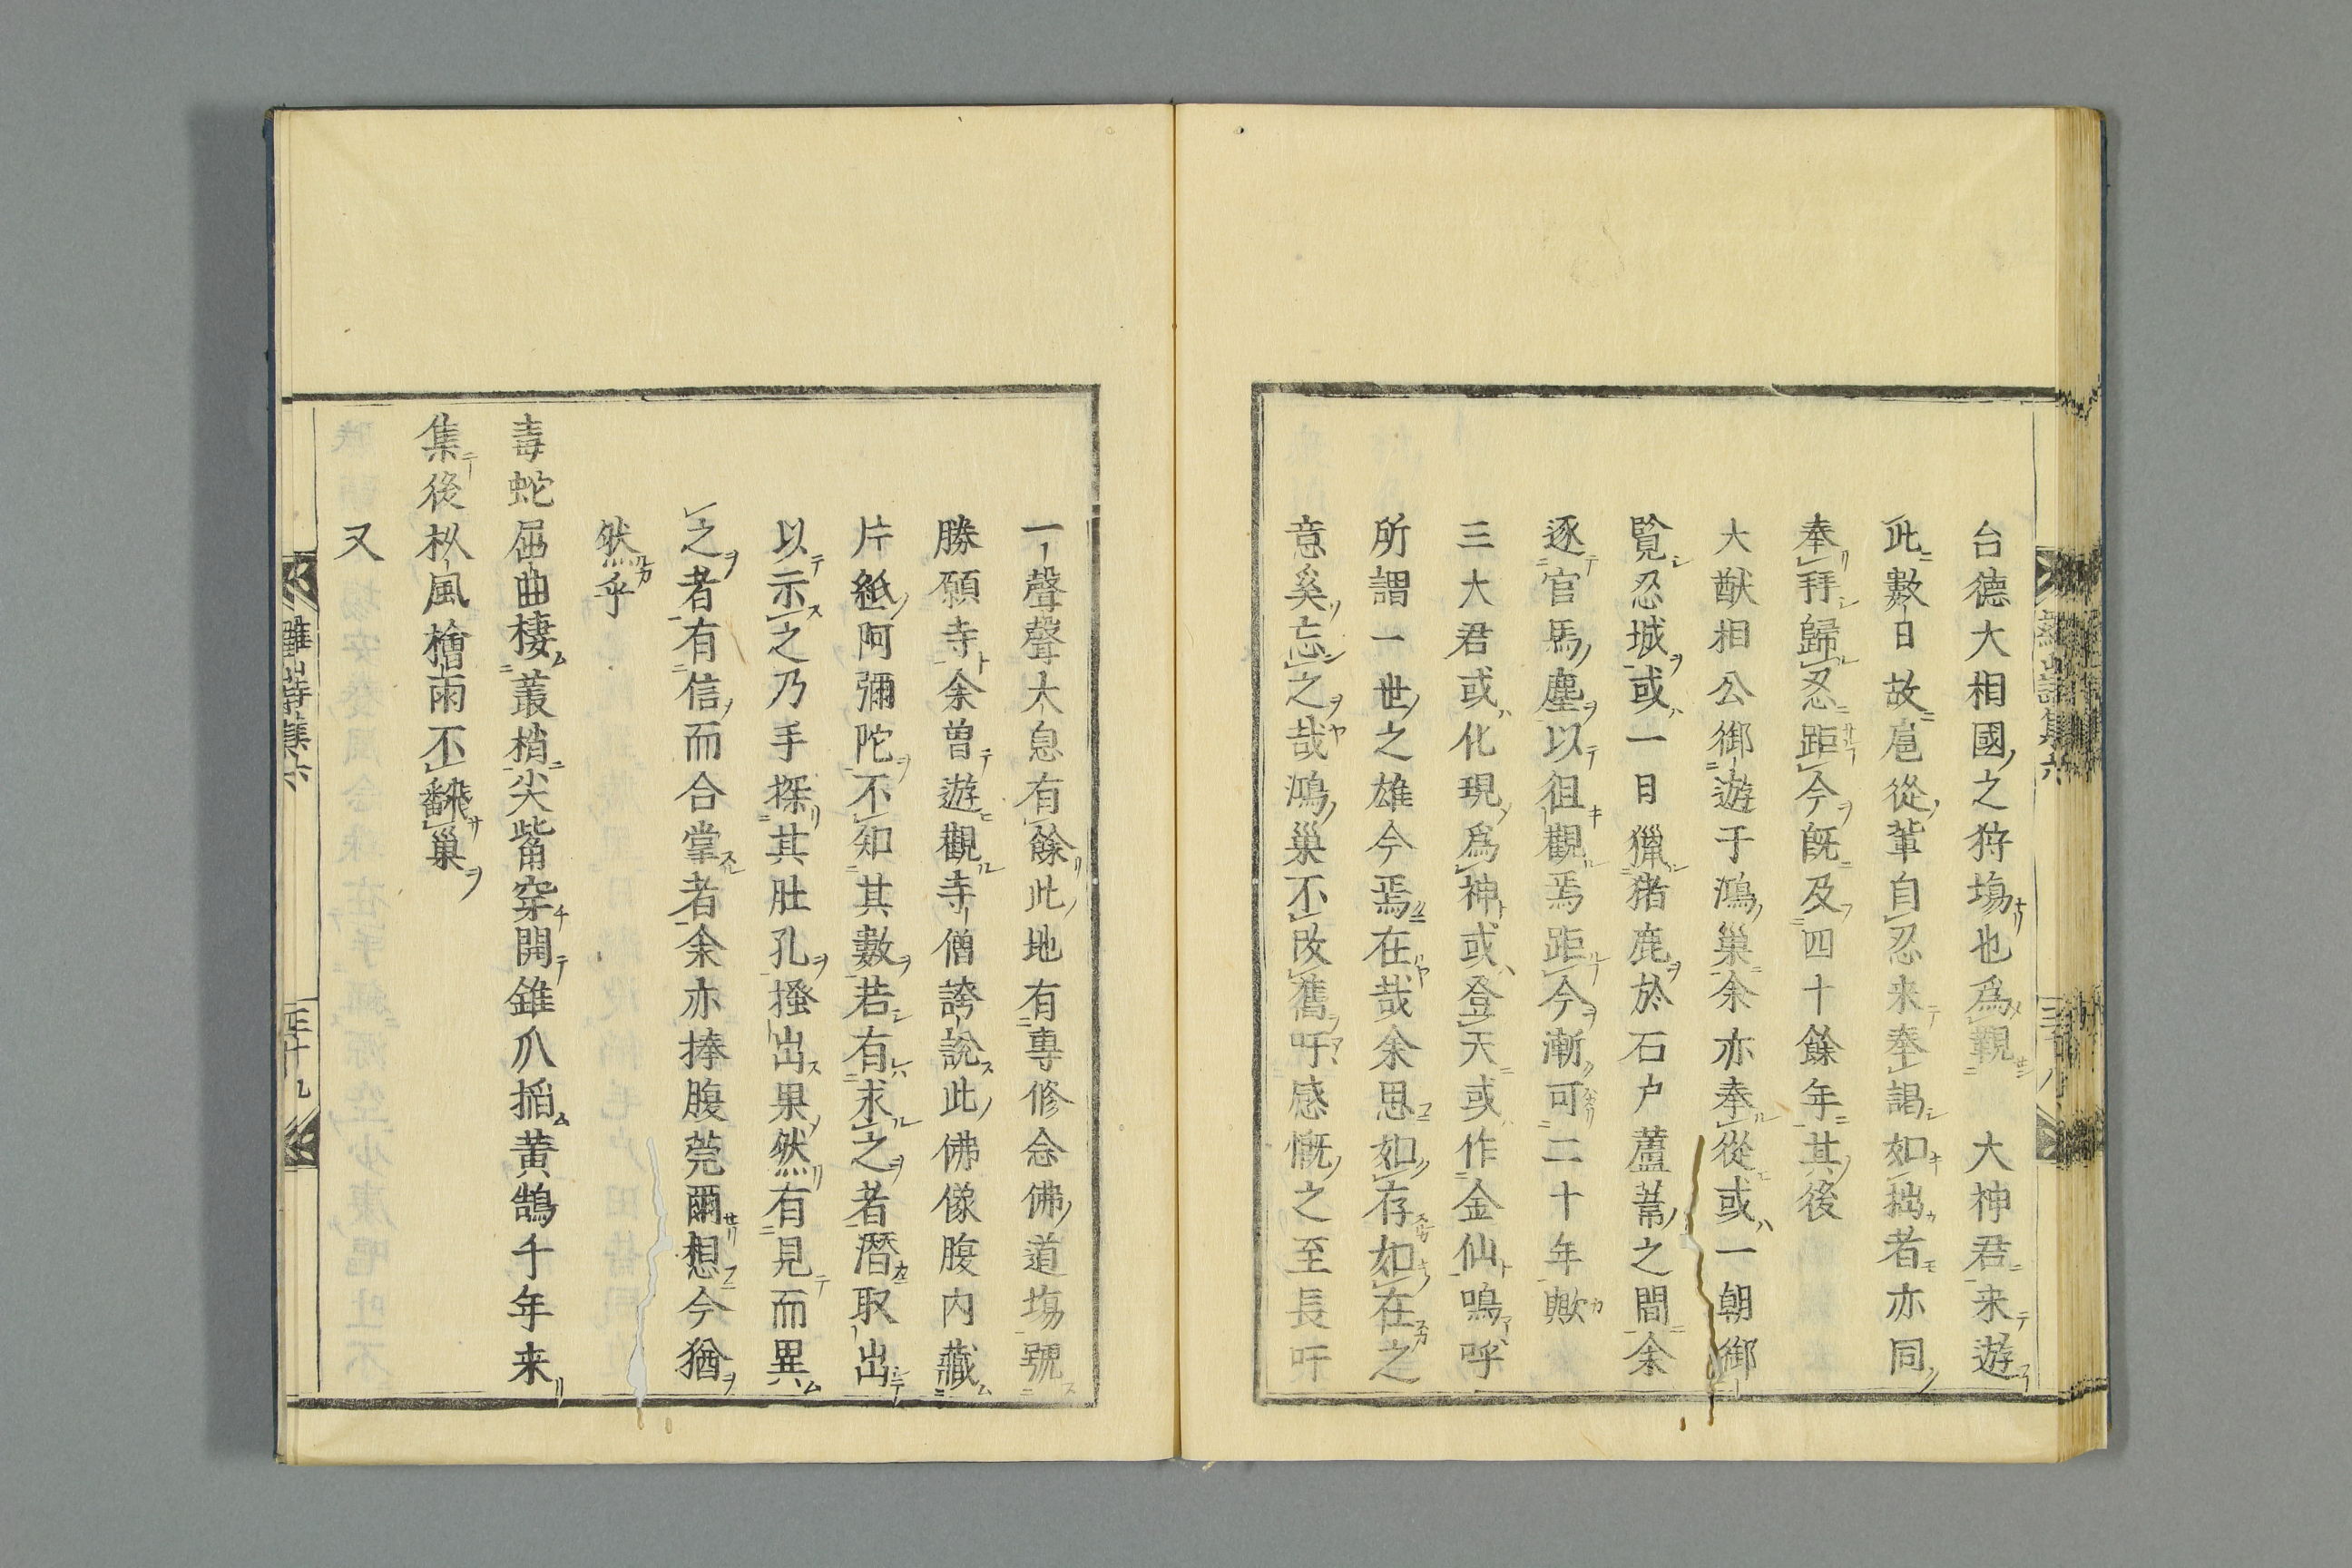 台德大相國之狩塲也爲覲　大神君来遊
此數日故扈從輩自忍来奉謁如拙者亦同
奉拜歸忍距今旣及四十餘年其後
大猷相公御遊于鴻巢余亦奉從或一朝御
覧忍城或一日獵猪鹿於石户蘆葦之間余
逐官馬塵以徃觀焉距今漸可二十年歟
三大君或化現爲神或登天或作金仙嗚呼
所謂一世之雄今焉在哉余思如存如在之
意奚忘之哉鴻巢不改舊吁感慨之至長吁
一聲聲大息有餘此地有專修念佛道塲號
勝願寺余曽遊觀寺僧誇說此佛像腹内藏
片紙阿彌陀不知其數若有求之者潛取出
以示之乃手探其肚孔搔出果然有見而異
之者有信而合掌者余亦捧腹莞爾想今猶
然乎
毒蛇屈曲棲叢梢尖觜穿開錐爪搯黄鵠千年来
集後枞風檜雨不飜巢
又